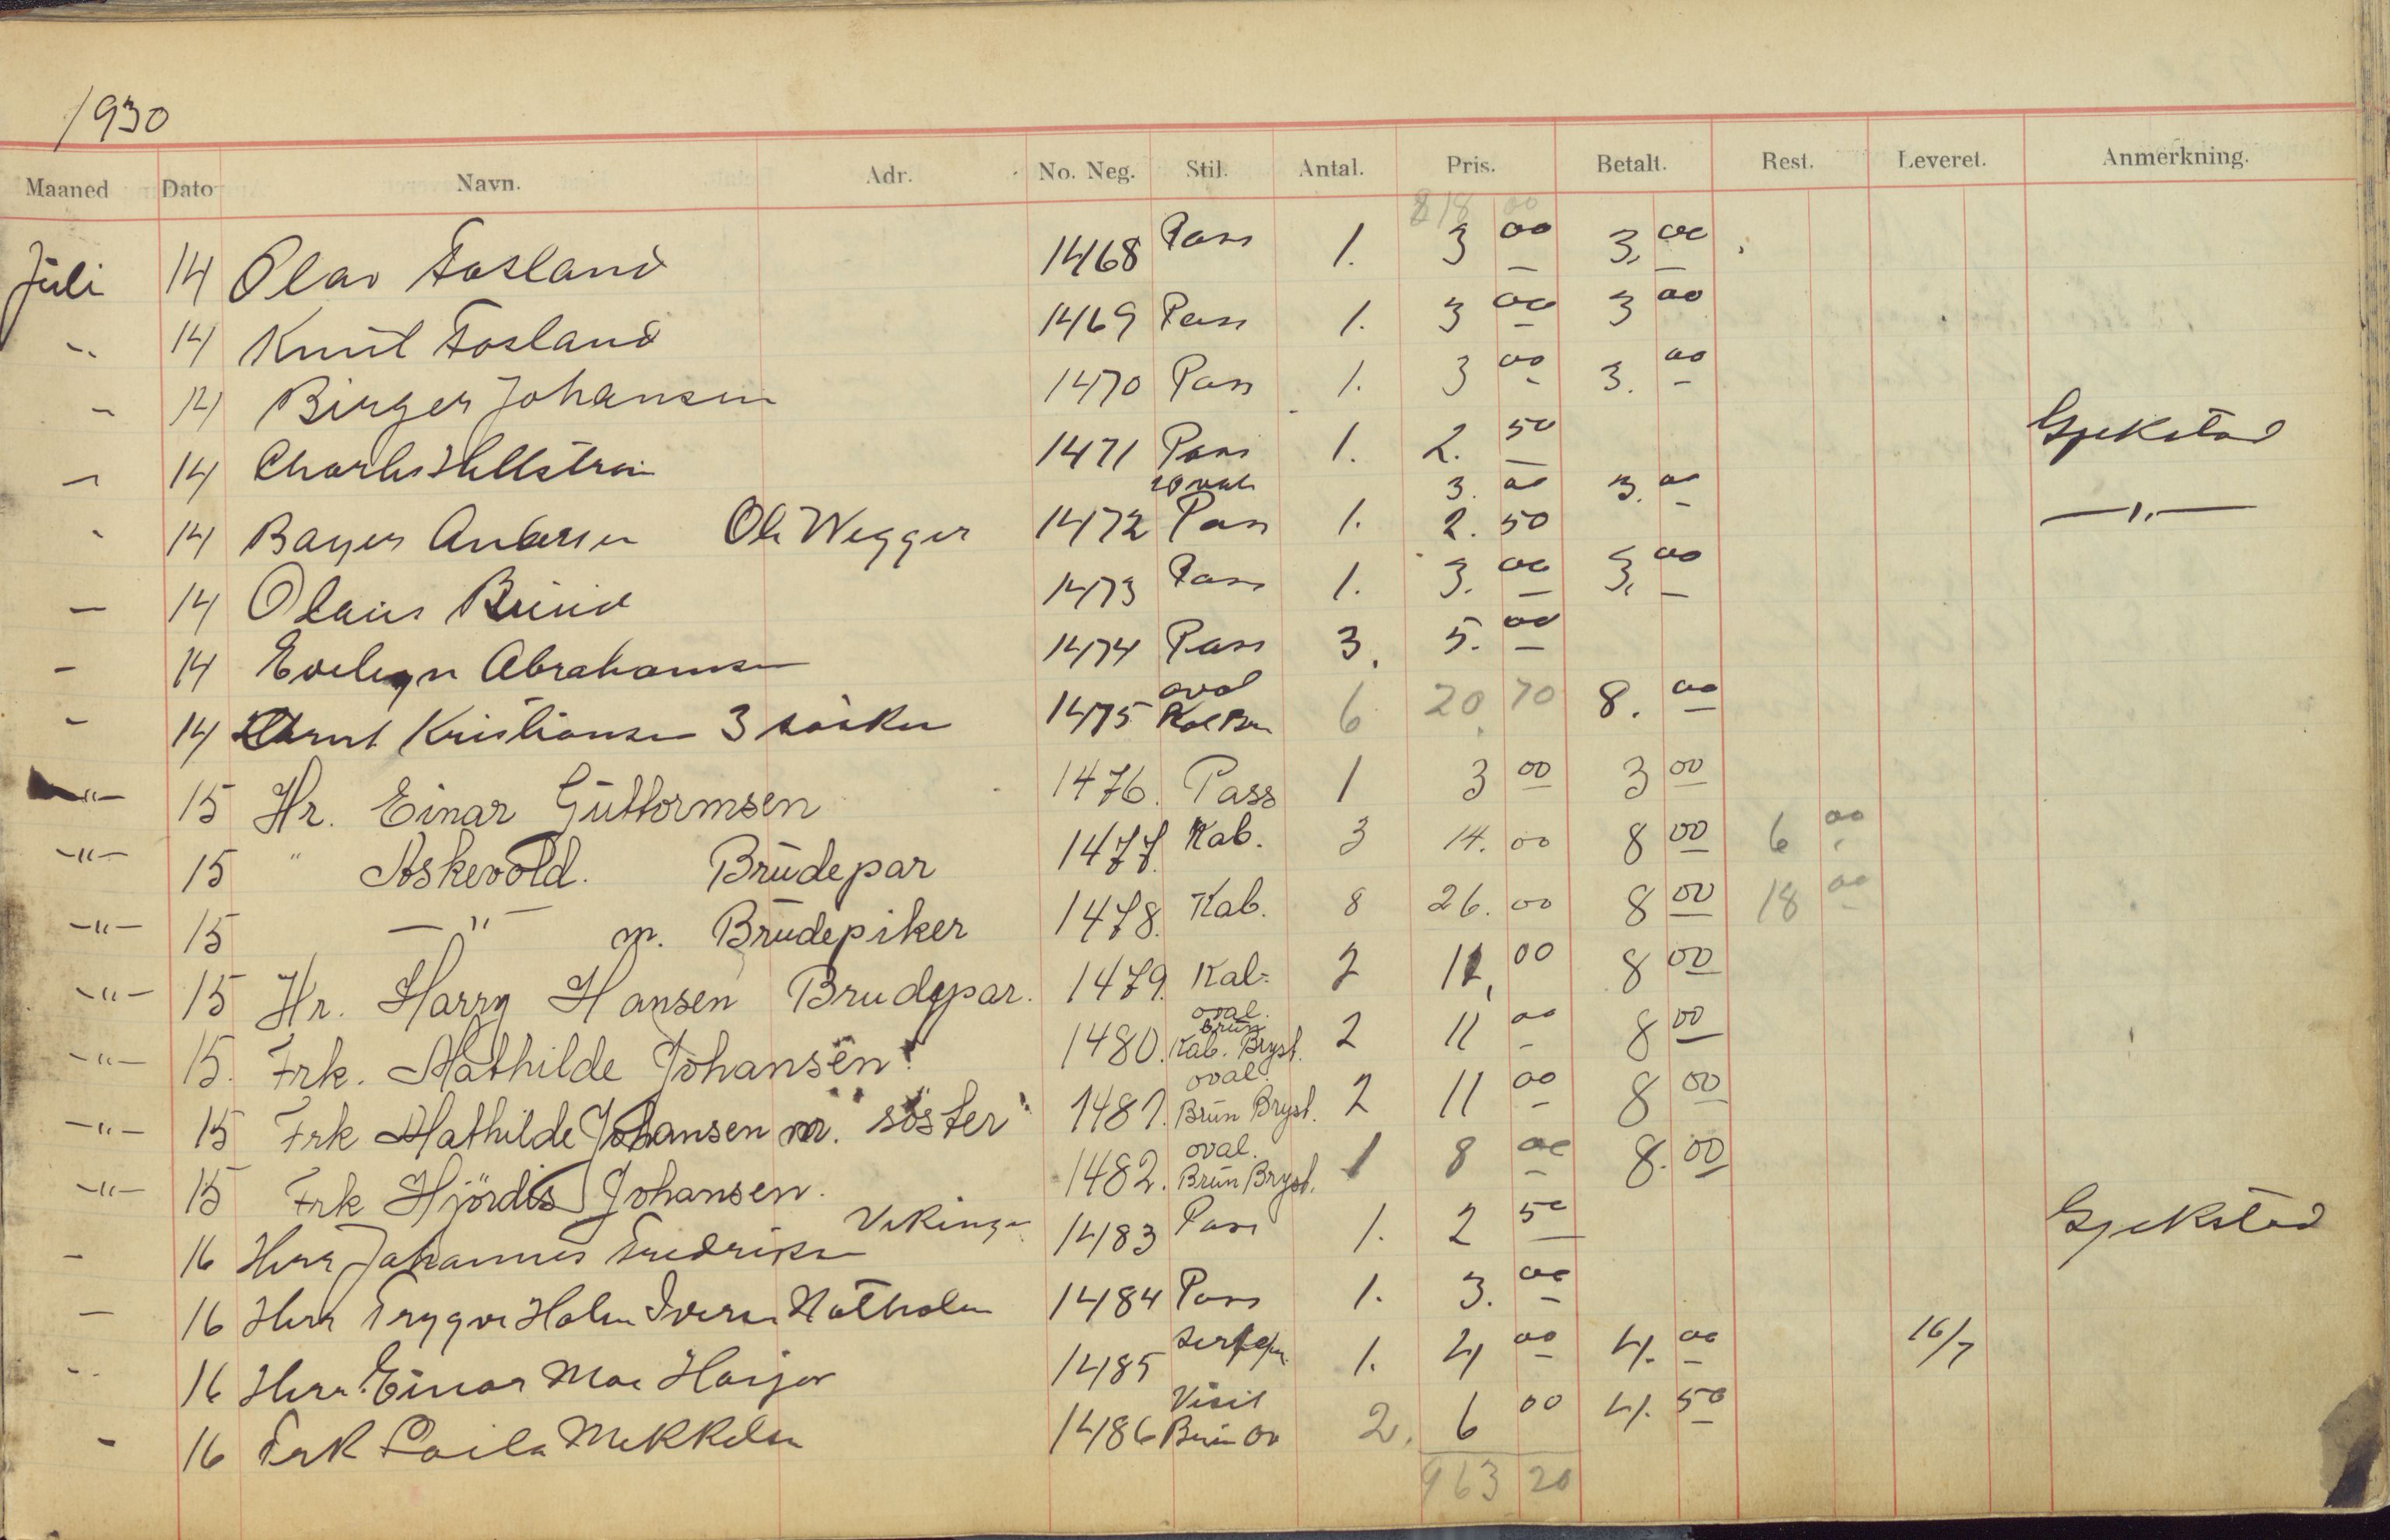 1930
Maaned Dato Navn. Adr. No. Neg. Stil. Antal. Pris. Betalt. Rest. Leveret. Anmerkning.
818 00
Juli 14 Olav Fosland 1468 Pass 1. 3 00 3, 00
" 14 Knut Fosland 1469 Pass 1. 3 00 3 00
" 14 Birger Johansen 1470 Pass 1. 3 00 3. 00
" 14 Charles Hellstrøm 1471 Pass 1. 2. 50 Gjekstad
3. 00 3. 00
" 14 Andersen Ole Wegger 1472 Pass 1. 2. 50 —"—
— 14 Olaus 1473 Pass 1. 3. 00 3, 00
— 14 Evelyn Abrahamsen 1474 Pass 3. 5. 00
oval
— 14 Kristiansen 3 søsken 1475 6 20 70 8. 00
—"— 15 Hr. Einar Guttormsen 1476. Pass 1 3 00 3 00
—"— 15 " Askevold. Brūdepar 1477. Kab. 3 14. 00 8 00 6 00
—"— 15 —"— m. Brūdepiker 1478. Kab. 8 26. 00 8 00 18 00
—"— 15 Hr. Harry Hansen Brudepar. 1479. Kab. 2 11, 00 8 00
oval.
brūn
—"— 15. Frk. Mathilde Johansen 1480. Kab. Bryst. 2 11 00 8 00
oval.
—"— 15 Frk Mathilde Johansen m. söster 1481. Brūn Bryst. 2 11 00 8 00
oval.
—"— 15 Frk Hjördis Johansen. 1482. Brūn Bryst. 1 8 00 8. 00
— 16 Herr Johannes Fredriksen Vikingen 1483 Pass 1. 2 50 Gjekstad
— 16 Herr Trygve Holm Iversen Nøtholm 1484 Pass 1. 3. 00
" 16 Herr Einar Moe 1485 1. 4 00 4. 00 16/7
Visit
— 16 Frk Laila Mikkelsen 1486 Brūn Ov 2. 6 00 4. 50
963 20